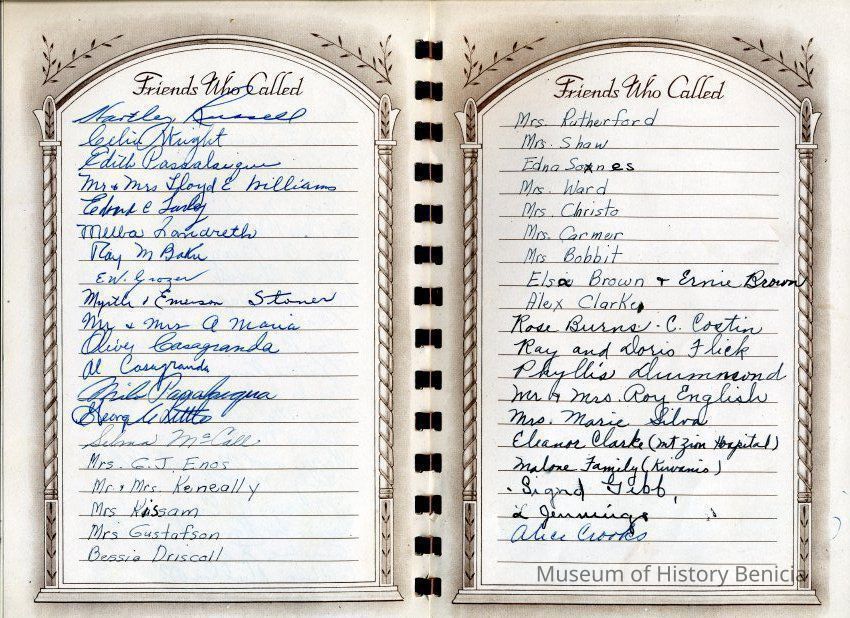 Friends Who Called
Hartley Russell
Celia Wright
Edith Passalacqua
Mr & Mrs Lloyd E Williams
Edward C
Melba Landreth
Ray M Baker
E.W. Grozer
Myrtle & Emerson Stoner
Mr & Mrs A Maria
Oliver Casagranda
Al Casagranda
George
Selma McCall
Mrs. G.J. Enos
Mr. & Mrs. Keneally
Mrs Kissam
Mrs Gustafson
Bessie Driscoll
Friends Who Called
Mrs. Rutherford
Mrs. Shaw
Edna Soxnes
Mrs. Ward
Mrs. Christo
Mrs. Carmer
Mrs Bobbit
Elsie Brown & Ernie Brown
Alex Clarke
Rose Burns - C. Costin
Ray and Doris Flick
Phyllis Drummond
Mr. & Mrs. Roy English
Mrs. Marie Silva
Eleanor Clarke (Mt Zion Hospital)
Malone Family (Kiwanis)
Sigrid Gibb,
L Jennings
Alice Crooks
Museum of History Benicia